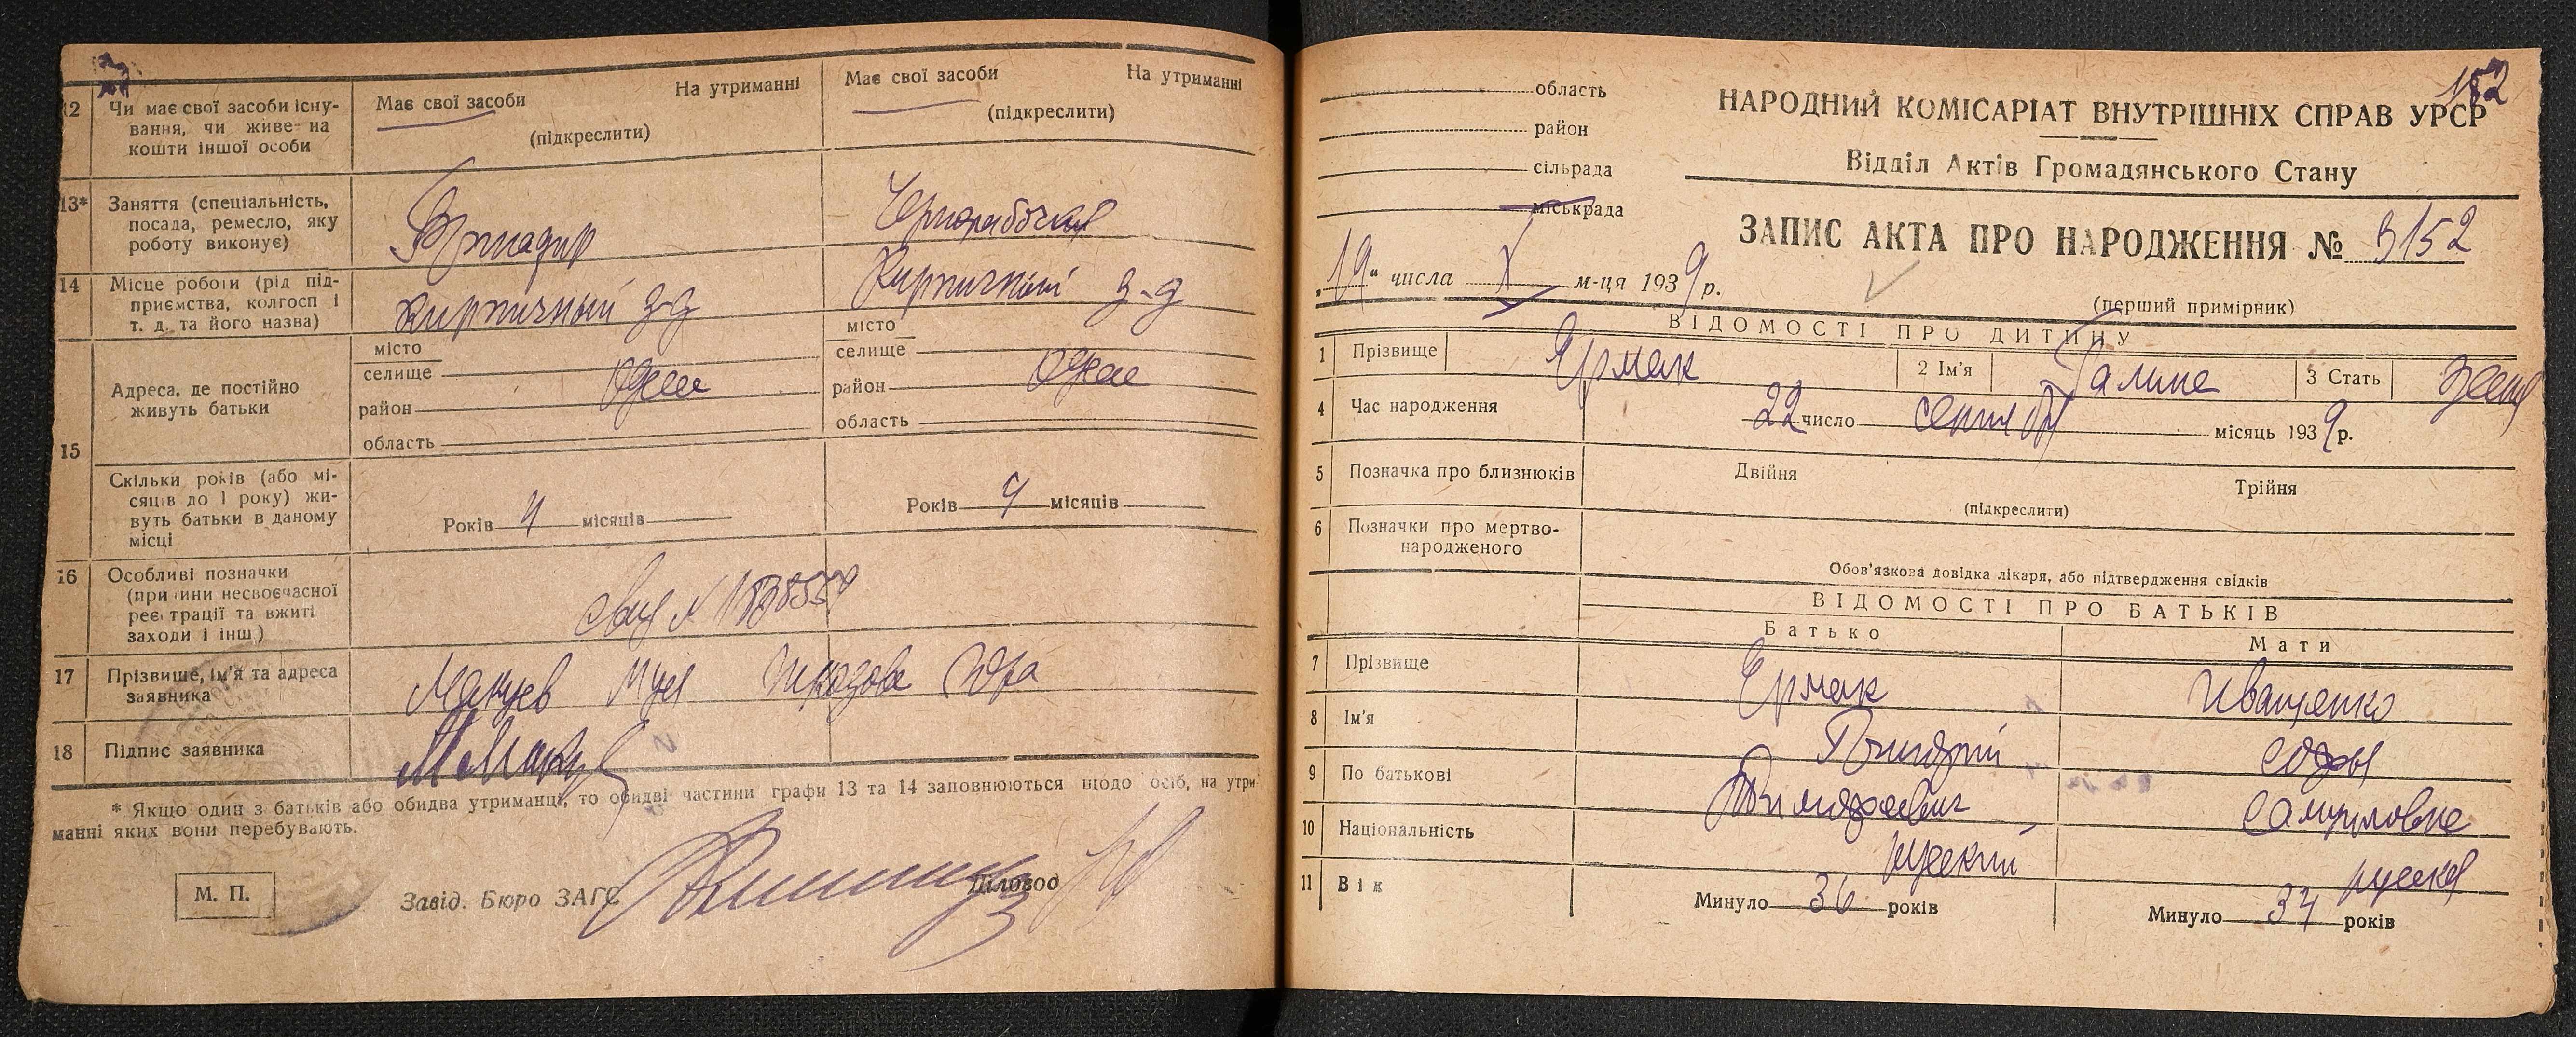 12 Чи має свої засоби існу-
вання, чи живе на
кошти іншої особи
Має свої засоби На утриманні
(підкреслити)
Має свої засоби На утриманні
(підкреслити)
13* Заняття (спеціальність,
посада, ремесло, яку
роботу виконує)
Бригадир
Чернорабочая
14 Місце роботи (рід під-
приємства, колгосп і
т. д. та його назва)
Кирпичный з-д
Кирпичний з-д
15 Адреса, де постійно
живуть батьки
місто
селище
Одесса
район
область
місто
селище
Одесса
район
область
Скільки років (або мі-
сяців до 1 року) жи-
вуть батьки в даному
місці
Років 4 місяців
Років 4 місяців
16 Особливі позначки
(причини несвоєчасної
реєстрації та вжиті
заходи і інш.)
17 Прізвище, ім'я та адреса
заявника
18 Підпис заявника
* Якщо один з батьків або обидва утриманці, то обидві частини графи 13 та 14 заповнюються щодо осіб, на утри-
манні яких вони перебувають.
М. П.
Завід. Бюро ЗАГС
Діловод
область
район
сільрада
міськрада
152
НАРОДНИЙ КОМІСАРІАТ ВНУТРІШНІХ СПРАВ УРСР
Відділ Актів Громадянського Стану
ЗАПИС АКТА ПРО НАРОДЖЕННЯ № 3152
„19“ числа X м-ця 1939 р.
(перший примірник)
ВІДОМОСТІ ПРО ДИТИНУ
1 Прізвище Ермак 2 Ім'я Галина 3 Стать жен
4 Час народження 22 число сентябр місяць 1939 р.
5 Позначка про близнюків Двійня Трійня
(підкреслити)
6 Позначки про мертво-
народженого
Обов'язкова довідка лікаря, або підтвердження свідків
ВІДОМОСТІ ПРО БАТЬКІВ
Батько Мати
7 Прізвище Ермак Иващенко
8 Ім'я Григорий Софья
9 По батькові Тимофеевич Самуиловна
10 Національність русский русская
11 Вік Минуло 36 років Минуло 34 років